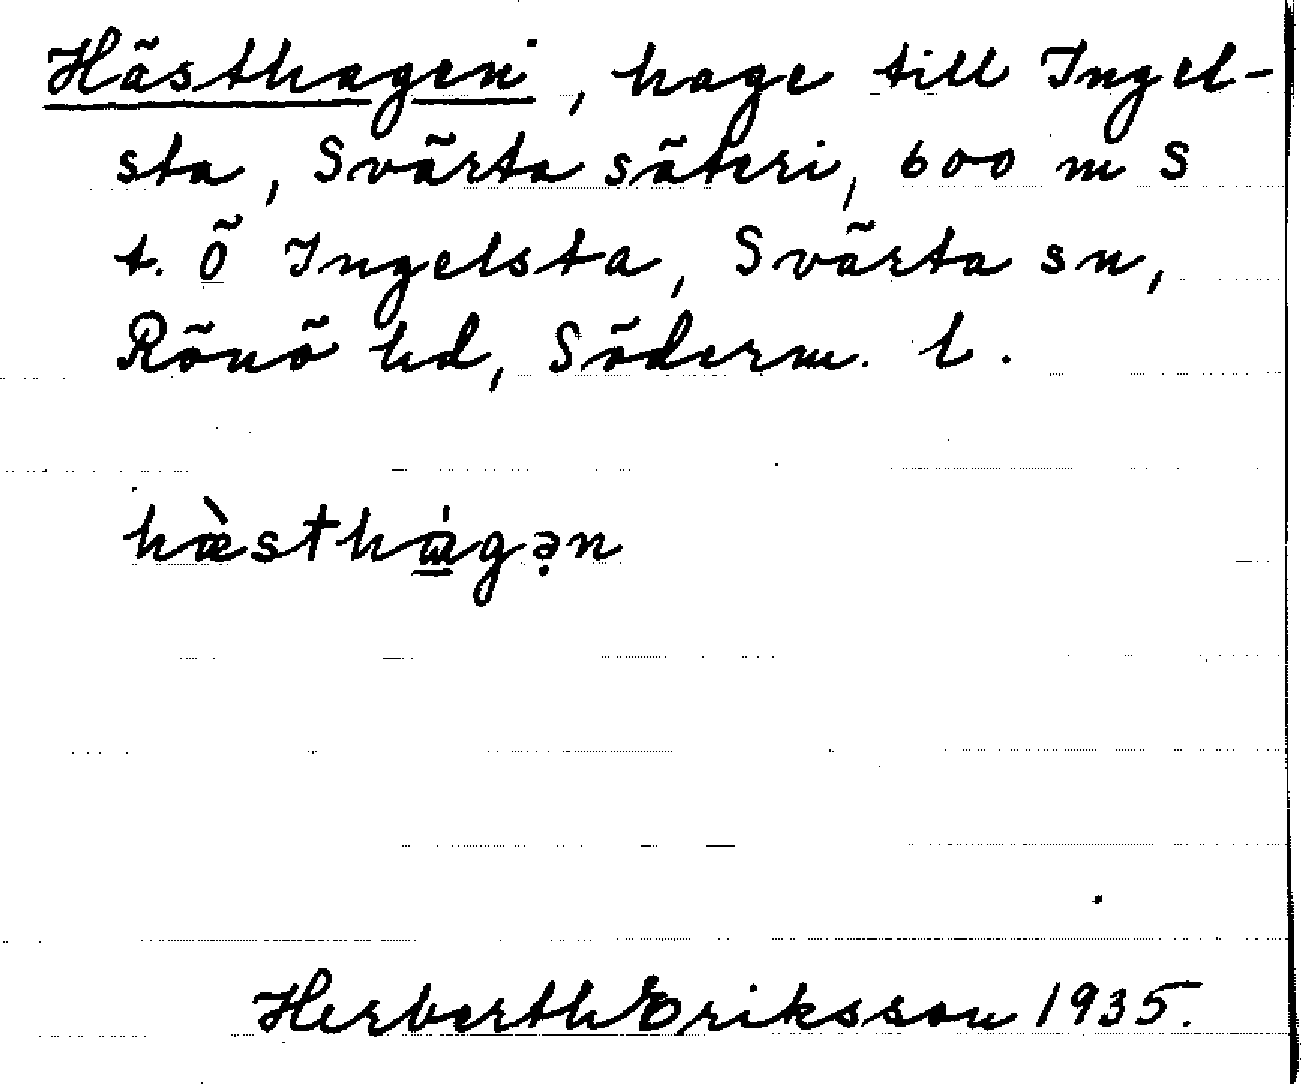 Hästhagen, hage till Ingel-
sta, Svärta säteri, 600 m S
t. Ö Ingelsta, Svärta sn,
Rönö hd, Söderm. l.
hæ̀sthɑ̍gə̣n
Herberth Eriksson 1935.